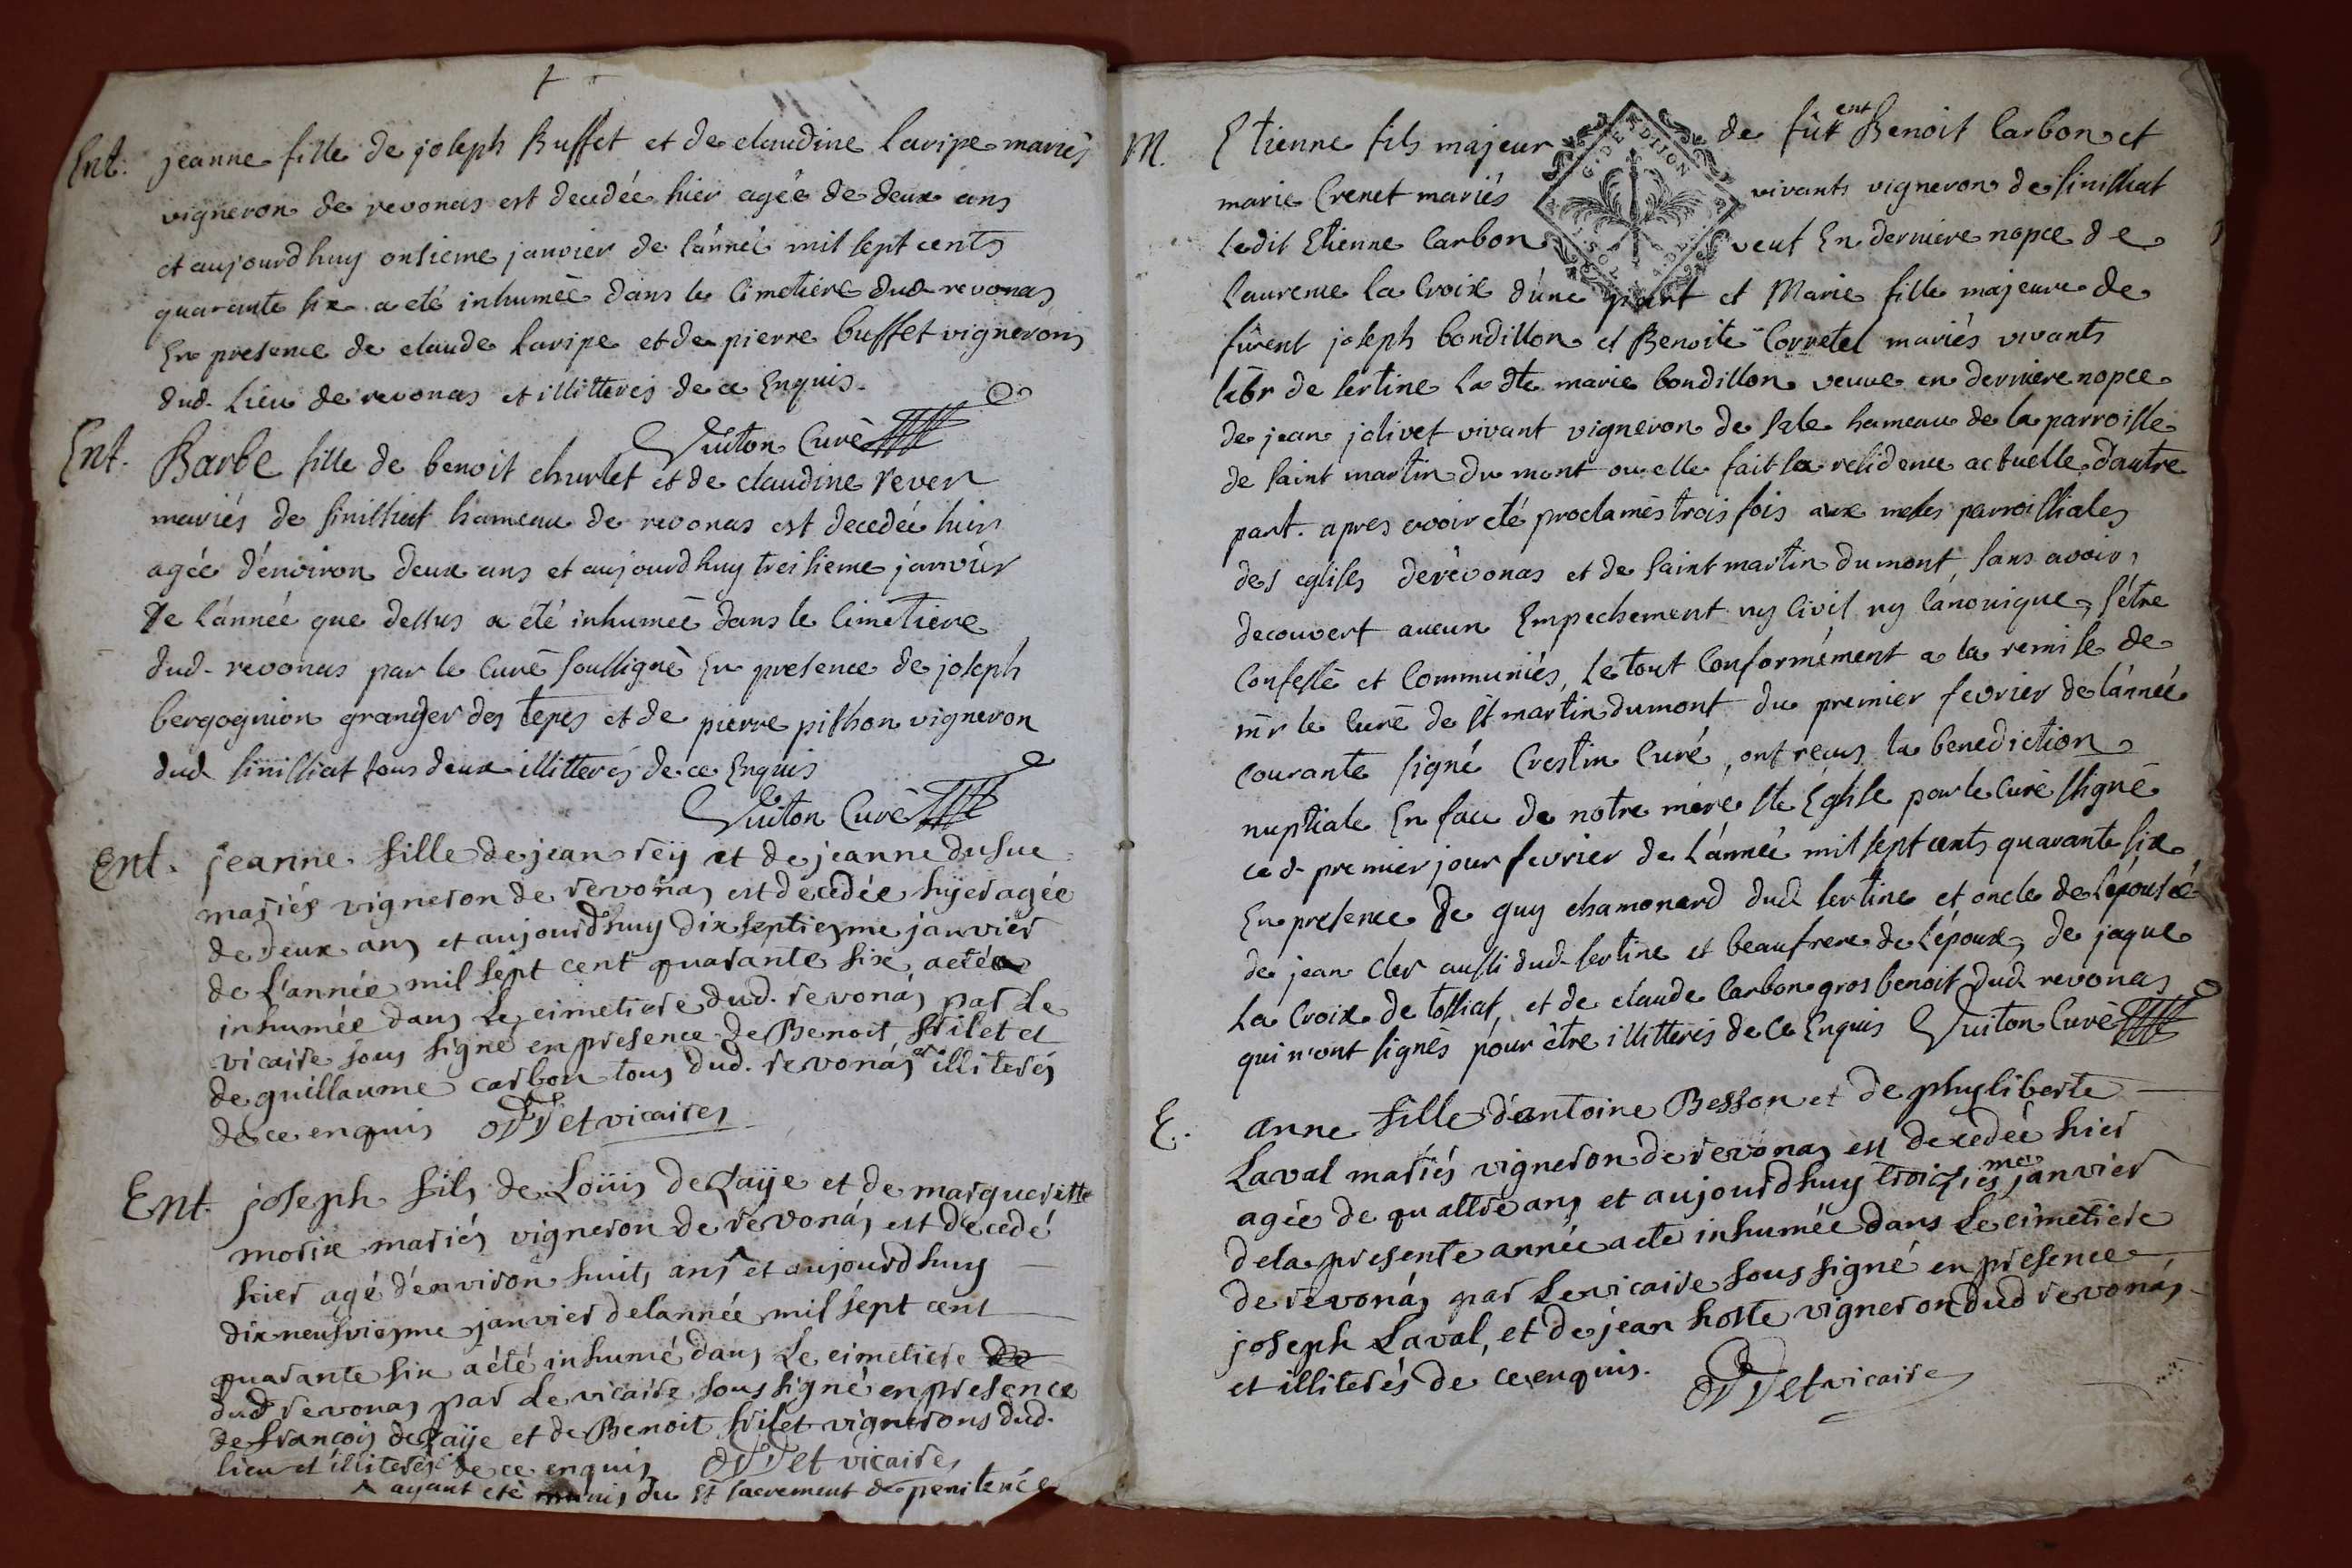 Ent. jeanne fille de joseph Buffet et de claudine laripe mariés
vigneron de revonas est decedée hier agée de deux ans
et aujourdhuy onsieme janvier de l'année mil sept cents
quarante six a eté inhumée dans le Cimetiere dud revonas
En presence de claude laripe et de pierre buffet vignerons
dud. Lieu de revonas et illitterés de ce Enquis.
Vuiton Curé
Ent. Barbe fille de benoit churlet et de claudine rever
mariés de sinissiat hameau de revonas est decedée hier
agée d'environ deux ans et aujourdhuy treisieme janvier
de l'année que dessus a été inhumée dans le Cimetiere
dud. revonas par le Curé soussigné En presence de joseph
bergognion granger des tepes et de pierre pithon vigneron
dud sinissiat tous deux illitterés de ce Enquis
Vuiton Curé
Ent. jeanne fille de jean rey et de jeanne dusuc
mariés vigneron de revonas est decedée hyer agée
de deux ans et aujourdhuy dix septiesme janvier
de l'année mil sept cent quarante six, a eté
inhumée dans Le cimetiere dud. revonas par Le
vicaire sous signé en presence de Benoit frilet et
de guillaume carbon tous dud. revonas et illiterés
de ce enquis vicaire
Ent. joseph fils de Loüis deLaije et de marguerite
morix mariés vigneron de revonas est decedé
hier agé d'environ huit ans ^ et aujourdhuy
dix neufviesme janvier de lannée mil sept cent
quarante six a été inhumé dans Le cimetiere de
dud revonas par Le vicaire sous signé en presence
de françois deLaije et de Benoit frilet vignerons dud.
lieu et illiterés de ce enquis vicaire
^ ayant eté munis du St sacrement de penitence
M. Etienne fils majeur de fûrent Benoit Carbon et
marie Crenet mariés vivants vigneron de sinissiat
G. DE X DITION
ledit Etienne Carbon veuf En derniere nopce de
laurence la Croix d'une part et Marie fille majeure de
fûrent joseph bondillon et Benoite Corretel mariés vivants
labr de sertine la dte marie bondillon veuve en derniere nopce
de jean jolivet vivant vigneron de sale hameau de la parroisse
de saint martin du mont ou elle fait sa residence actuelle d'autre
part. apres avoir eté proclamés trois fois aux meses parroissiales
des eglises de revonas et de saint martin du mont sans avoir
decouvert aucun Empechement ny Civil ny Canonique, s'étre
Confessé et Communiés, Le tout Conformément a la remise de
mr le Curé de st martin dumont du premier fevrier de l'année
courante signé Crestin Curé, ont recus la benediction
nuptiale En face de notre mere ste Eglise par le Curé ssigné
ce d. premier jour fevrier de L'année mil sept cents quarante six
En presence de guy chamonard dud sertine et oncle de L'épousée
de jean cler aussi dud. sertine et beaufrere de L'époux, de jaque
La Croix de tossiat, et de claude Carbon gros benoit dud revonas
qui n'ont signés pour être illitterés de Ce Enquis Vuiton Curé
E. anne fille d'antoine Besson et de phyliberte
Laval mariés vigneron de revonas est decedée hier
agée de quattre ans et aujourdhuy troiziesme janvier
de la presente année a eté inhumée dans Le cimetiere
de revonas par Le vicaire sous signé en presence
joseph Laval, et de jean hoste vigneron dud revonas
et illiterés de ce enquis. vicaire